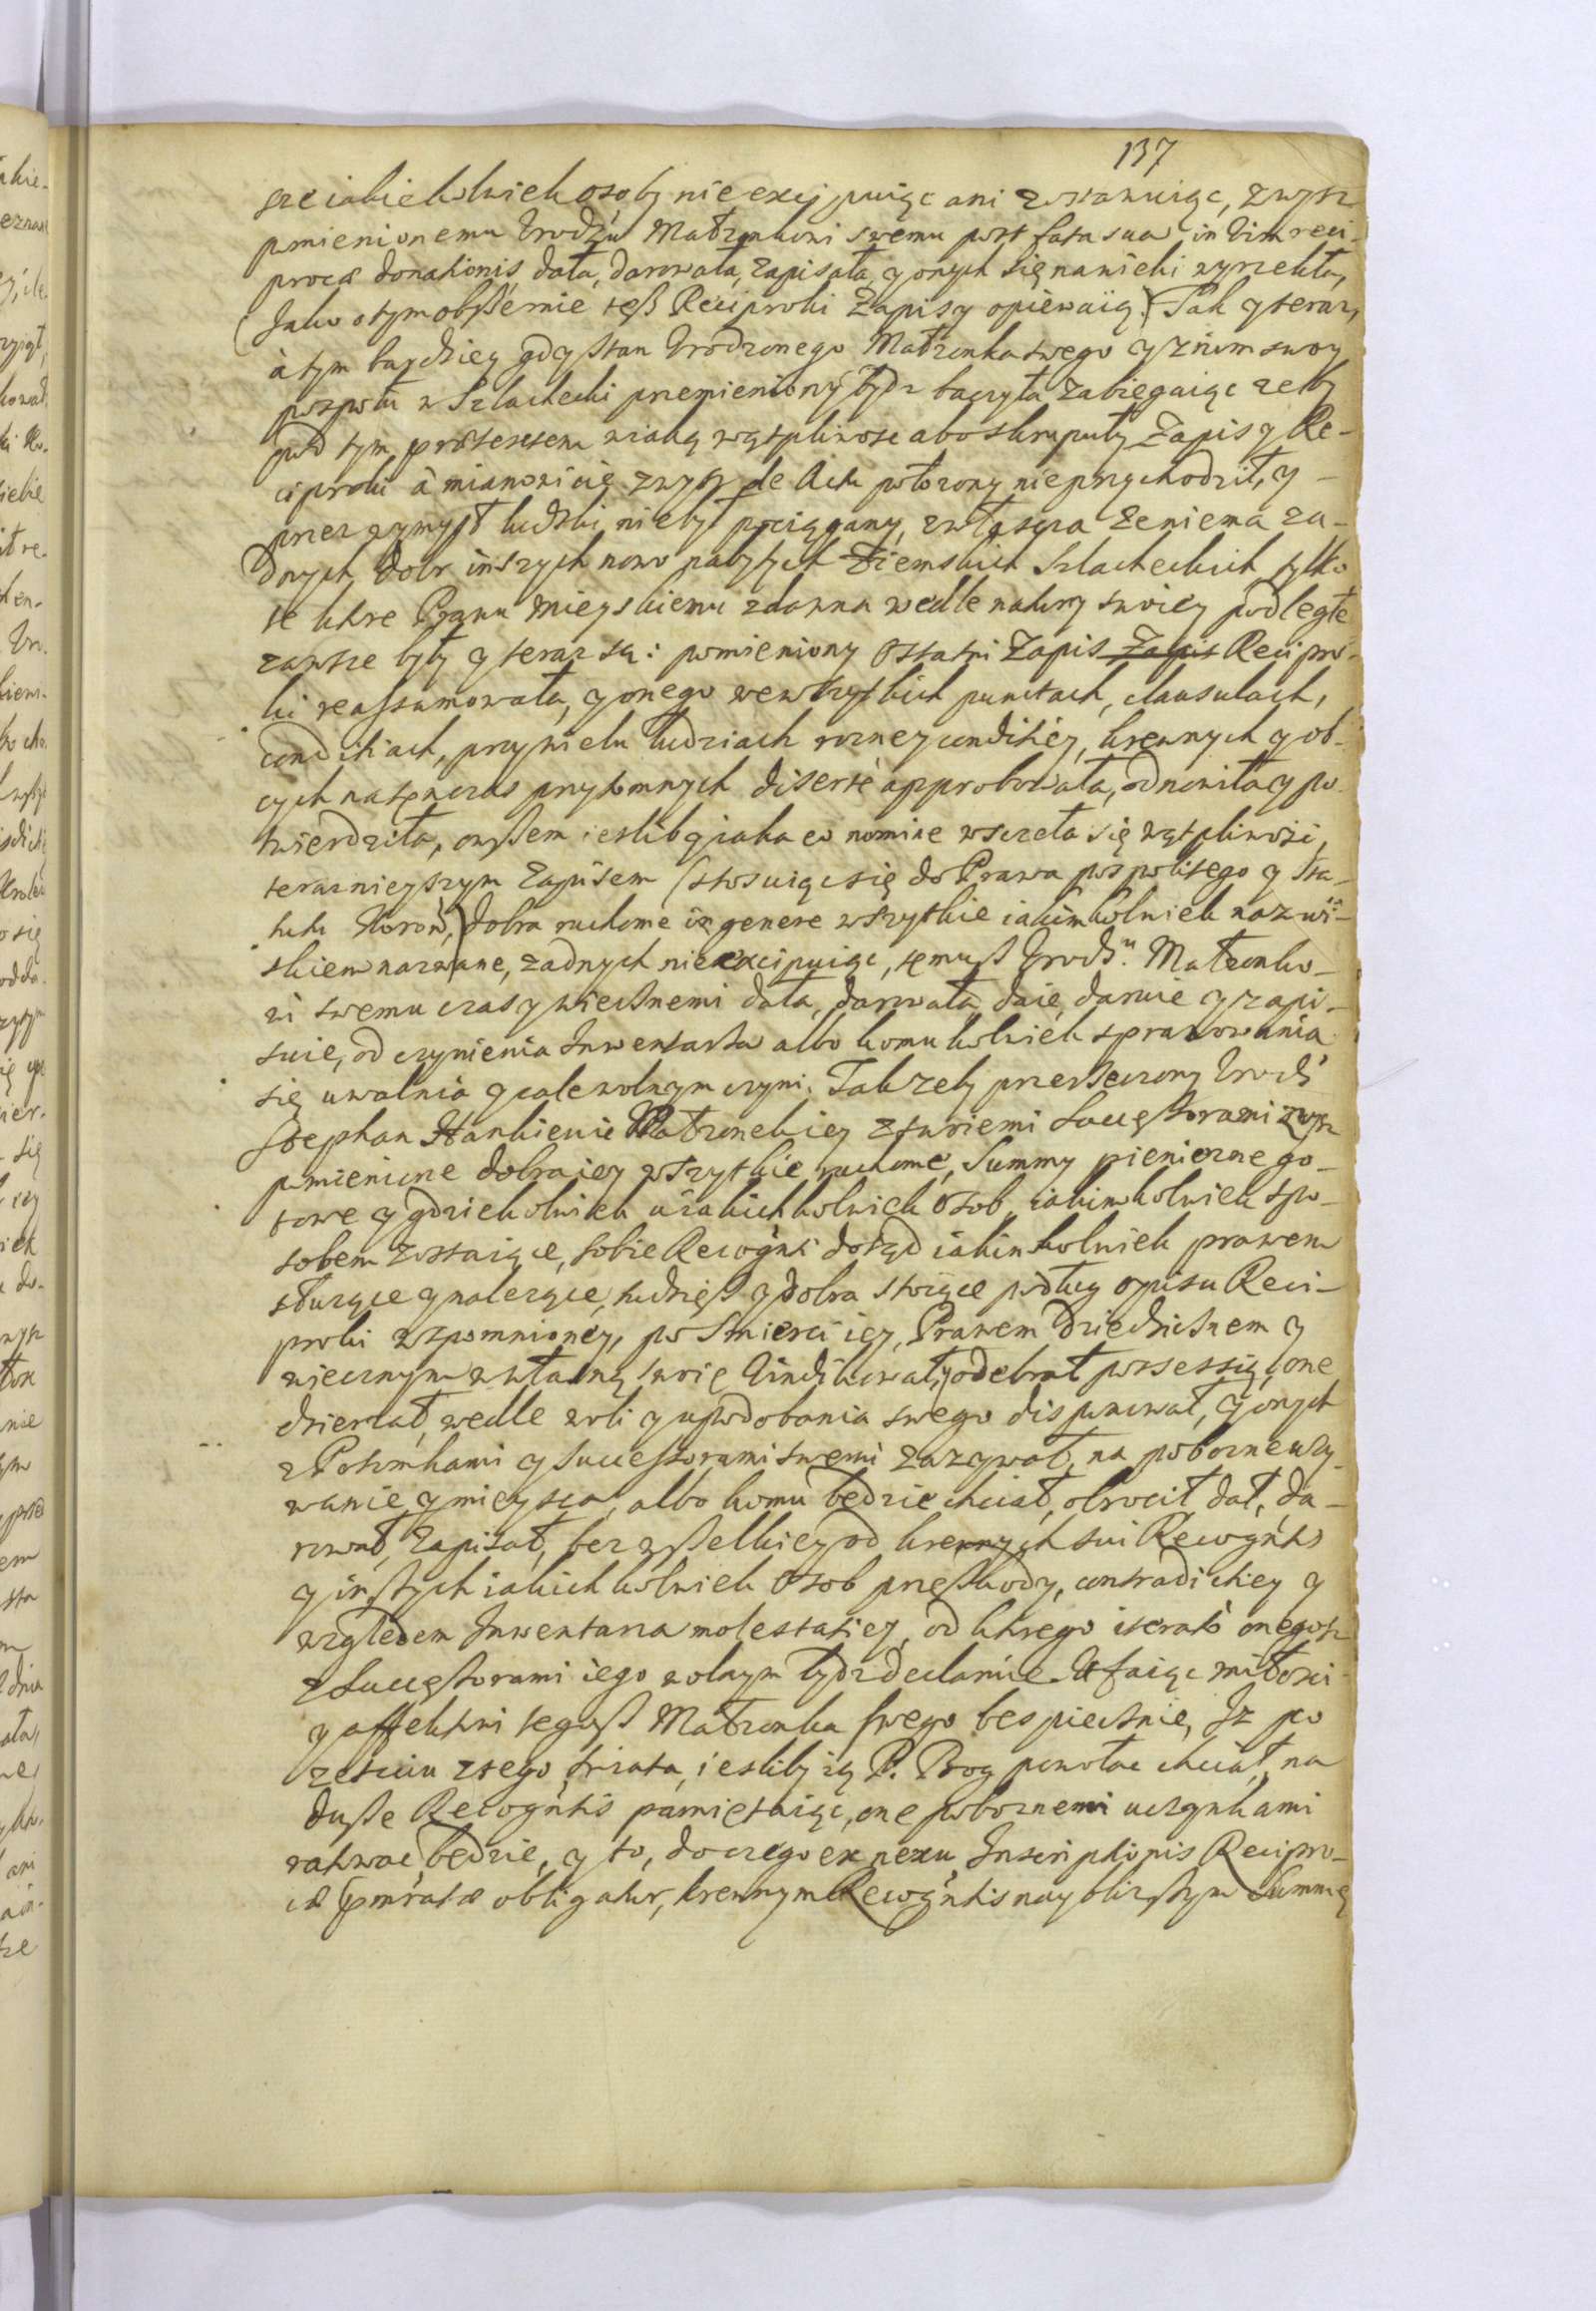 137
sze iakichkolwiek osoby nie excypuiąc ani zostawuiąc, zwysz
pmienionemu Urodzu Małżonkowi swemu post fata sua in vim reci-
procæ donationis, dała, darowała, zapisała, y onych się na wieki wyrzekła,
(Jako o tym obszernie tesz Reciproki Zapisy opiewaią) Tak y teraz,
à tym bardziey gdy stan Urodzonego Małżonka swego y z nim swoy
pospołu w Szlachecki przemieniony bydz baczyła zabiegaiąc zeby
pod tym praetextem w iaką wątpliwosc abo skrupuły Zapis y Re-
ciproki à mianowicię zwysz de Acta położony nie przychodził, y -
przez wymysł ludzki nie był pociągany, zwłascza ze nie ma za-
dnych dobr inszych nowo nabytych Ziemskich Szlacheckich tylko
te ktore Prawu Mieyskiemu zdawna wedle natury swoiey podległe
zawsze były y teraz są: pomieniony Ostatni Zapis Zapis Recipro-
ki reassumowała, y onego we wszytkich punctach, clausulach,
conditiach, przy wielu ludziach rozney conditiey, krewnych y ob-
cych na tęnczas przytomnych disertè approbowała, odnowiła y po-
twierdziła, owszem iesliby iaka eo nomine wszczęła się wątpliwosci,
teraznieyszym Zapisem (stosuiąc się do Prawa pospolitego y Sta-
tutu Koron,) dobra ruchome in genere wszytkie iakimkolwiek nazwi-
skiem nazwane, zadnych nie excipuiąc, temusz Urodz: Małzonko-
wi swemu czasy wiecznemi dała, darowała, daie, daruie y zapi-
suie, od czynienia Inwentarza albo komukolwiek sprawowania
się uwalnia y cale wolnym czyni. Tak zeby przerzeczony Urodz
Stephan Hankiewic Małzonek iey z swoiemi Successorami zwysz
pmienione dobra iey wszytkie ruchome, Summy pieniezne go-
towe y gdziekolwiek u iakichkolwiek Osob, iakimkolwiek spo-
sobem zostaiące, sobie Recogñti dotąd iakimkolwiek prawem
słuzące y nalezące, tudziesz y dobra stoiące podług opisu Reci-
proki wzpomnioney, po Smierci iey, Prawem Dziedzicznem y
wiecznym w własną swoię Vindikował, y odebrał possessią, one
dzierzał, wedle woli y upodobania swego disponował, y onych
z Potomkami y Successorami swemi zazywał, na pobozne uzy-
wanie, y mieysca, albo komu będzie chciał, obrocił, dał, da-
rował, Zapisał, bez wszelkiey od krewnych sui Recogñtis
y inszych iakichkolwiek Osob przeszkody, contradictiey y
względem Inwentarza molestatiey, od ktorego iterato onegosz
z Successorami iego wolnym bydz declaruie. Ufaiąc miłosci
y affektwi tegosz Małzonka swego bespiecznie, Iz po
zesciu zsego swiata, iesliby ią P. Bog powołac chciał, na
duszę Recogñtis pamiętaiąc, one poboznemi uczynkami
ratowac będzie, y to, do czego ex nexu Inscriptionis Recipro-
cæ pmratæ obligatur, krewnym Recogñtis nayblizszym Summę